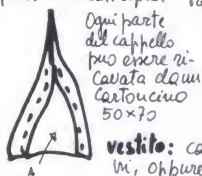 Ogni parte
del cappello
può essere ri-
cavata da un
Cartoncino
50×70
vestito:
vi, oppure